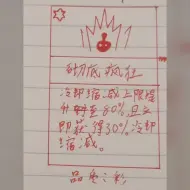 彻底疯狂
冷却缩减上限提
升至80%,且立
即获得30%冷却
缩减。
品质:彩